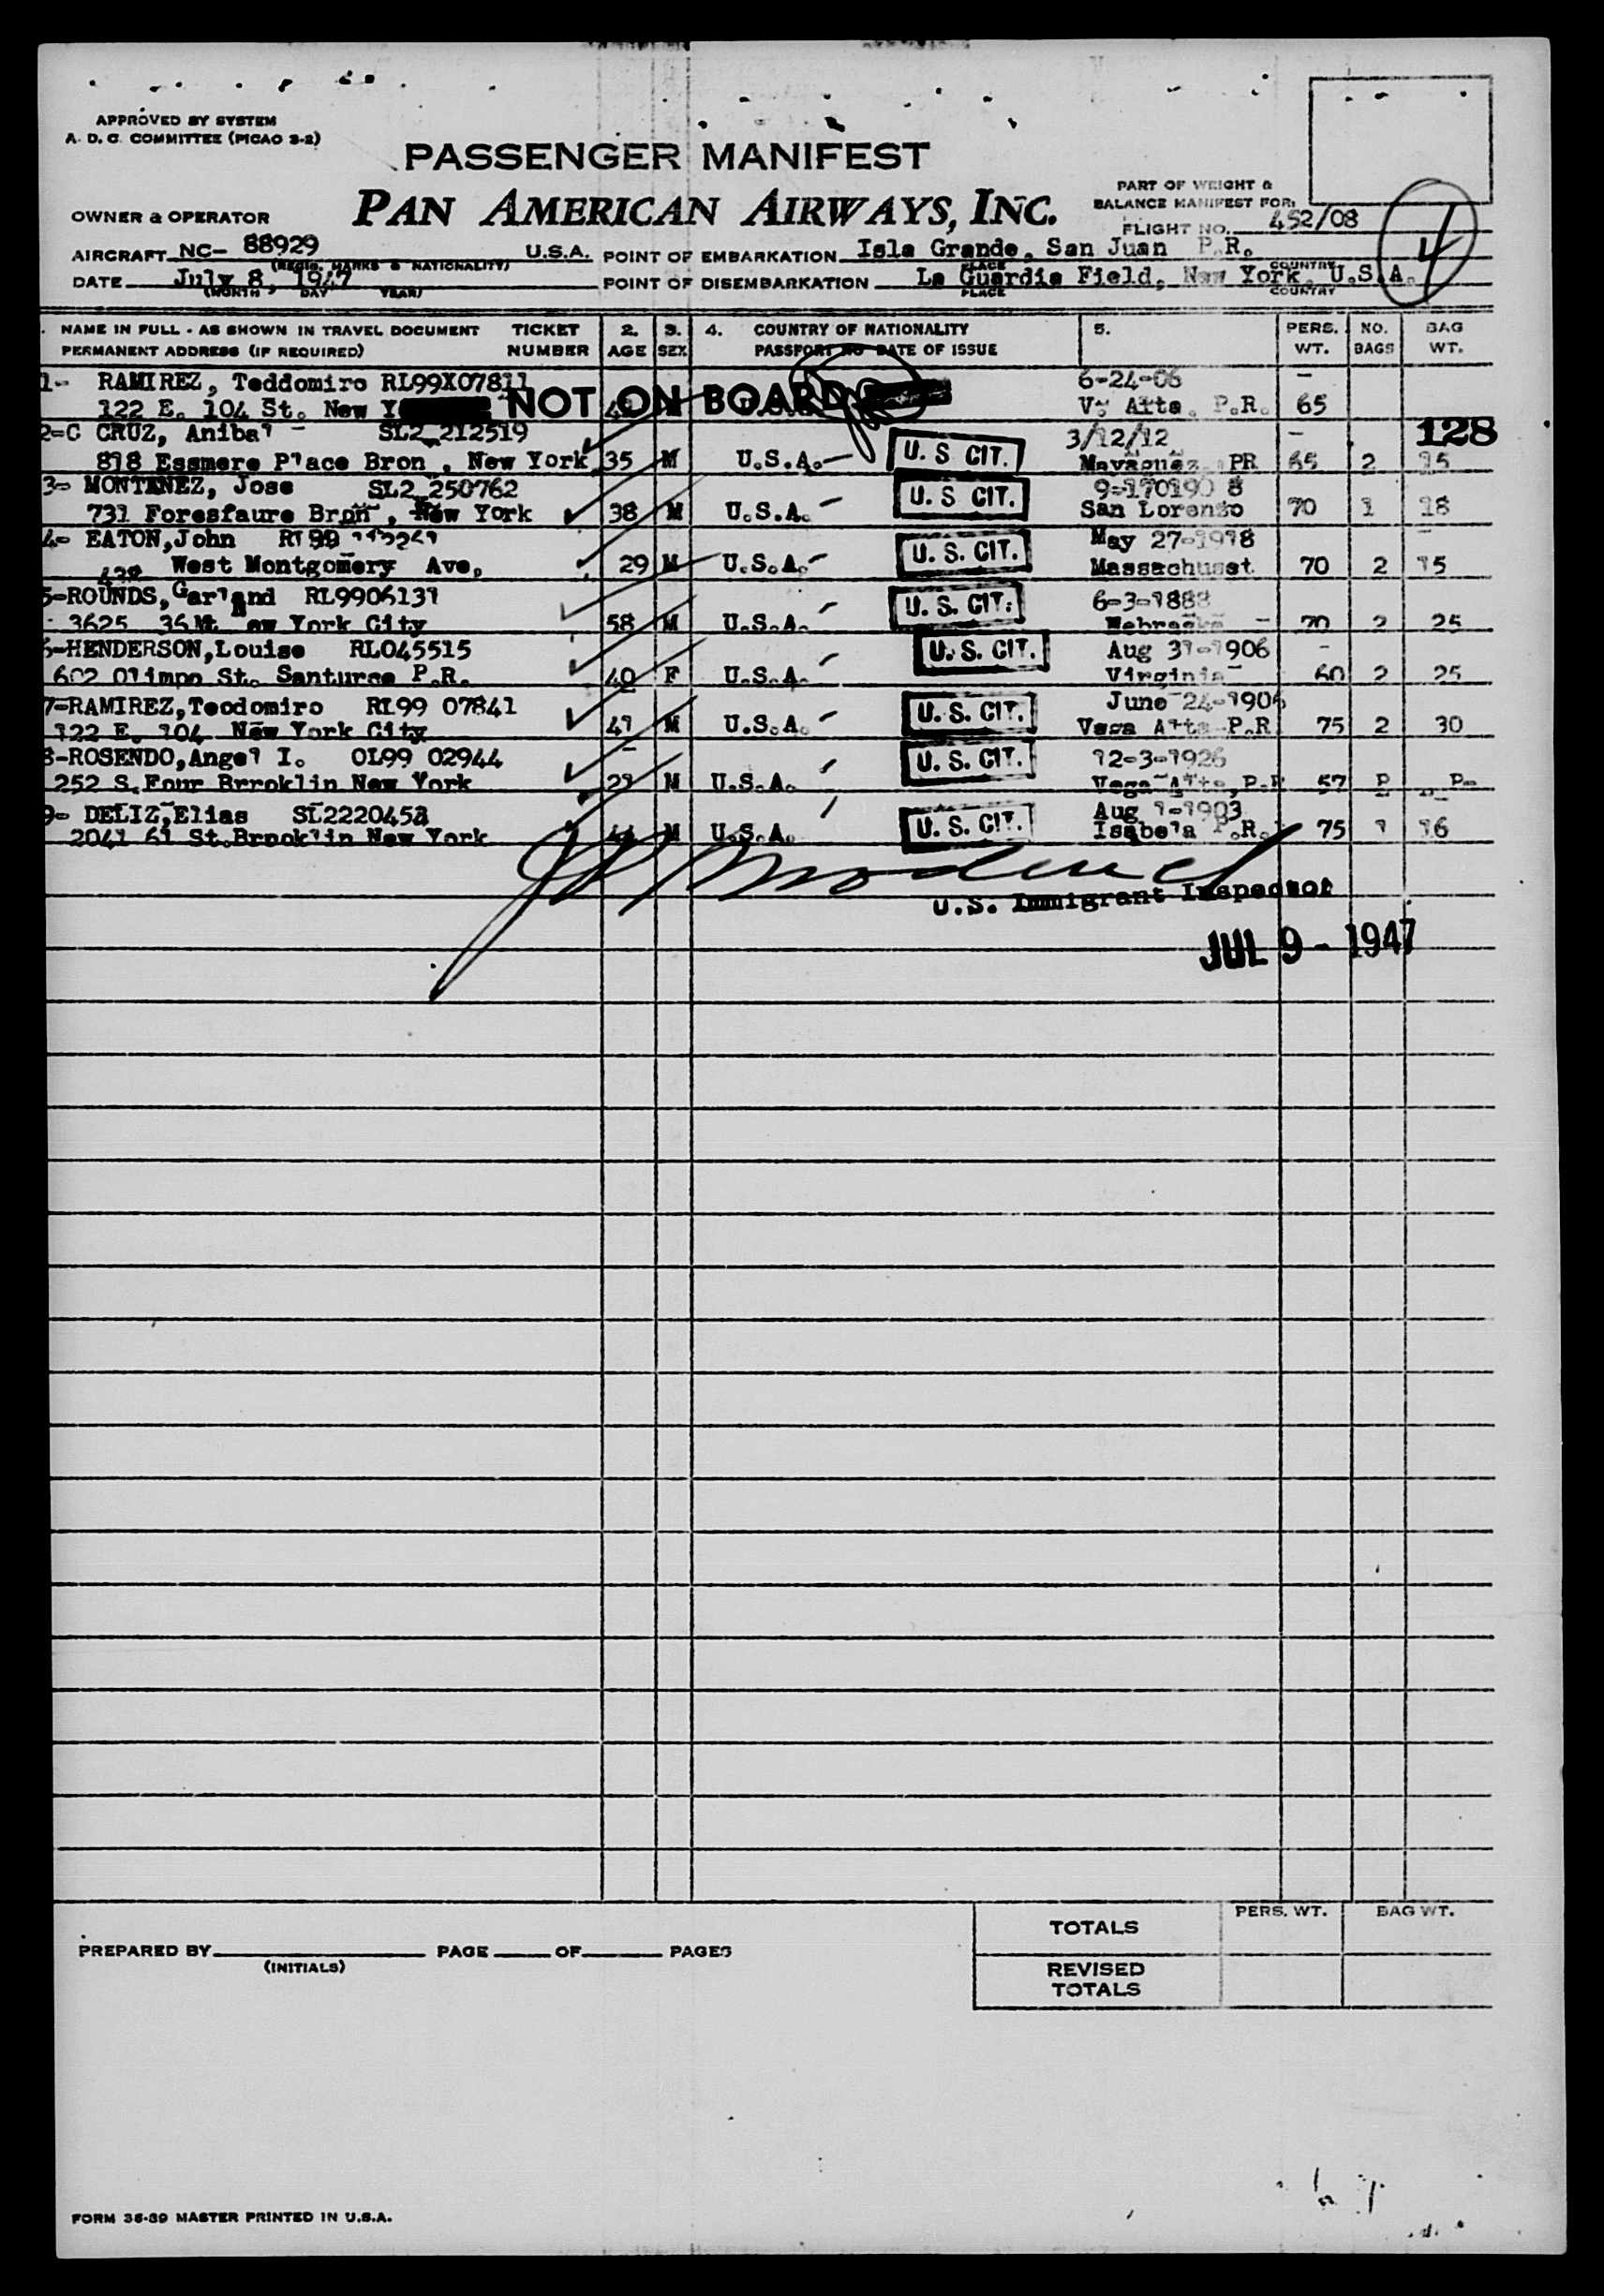 APPROVED BY SYSTEM
A. D. C. COMMITTEE (PICAO 3-2)
PASSENGER MANIFEST
PAN AMERICAN AIRWAYS, INC.
PART OF WEIGHT &
BALANCE MANIFEST FOR:
FLIGHT NO. 452/08
4
OWNER & OPERATOR
AIRCRAFT NC- 88929 U.S.A. POINT OF EMBARKATION Isla Grande, San Juan P.R.
(REGIS. MARKS & NATIONALITY) PLACE COUNTRY
DATE July 8, 1947 POINT OF DISEMBARKATION La Guardia Field, New York, U.S.A.
(MONTH DAY YEAR) PLACE COUNTRY
NAME IN FULL - AS SHOWN IN TRAVEL DOCUMENT TICKET 2. 3. 4. COUNTRY OF NATIONALITY 5. PERS. NO. BAG
PERMANENT ADDRESS (IF REQUIRED) NUMBER AGE SEX PASSPORT NO DATE OF ISSUE WT. BAGS WT.
1- RAMIREZ, Teddomiro RL99X07811 6-24-06
122 E. 104 St. New NOT ON BOARD V. Alta. P.R. 65
2-C CRUZ, Anibal SL2 212519 3/12/12 128
Place Bron , New York 35 M U.S.A. U. S CIT. PR 65 2 15
3- MONTANEZ, Jose SL2 250762
731 Foresfaure Bron , New York 38 M U.S.A. U. S CIT. San Lorenzo 70 1 18
4- EATON, John RL99 May 27-1918
West Montgomery Ave, 29 M U.S.A. U. S. CIT. Massachuset 70 2 15
5-ROUNDS, Garland RL9906131 6-3-1888
3625 New York City 58 M U.S.A. U. S. CIT. Nebraska 70 2 25
6-HENDERSON, Louise RL045515 Aug 31-1906
602 Olimpo St. Santurce P.R. 40 F U.S.A. U. S. CIT. Virginia 60 2 25
7-RAMIREZ, Teodomiro RL99 07841 June 24-1906
122 E. 104 New York City 41 M U.S.A. U. S. CIT. Vega Alta P.R. 75 2 30
8-ROSENDO, Angel I. OL99 02944 12-3-1926
252 S.Four Brroklin New York M U.S.A. U. S. CIT. Vega Alta, P.R 57
9- DELIZ, Elias SL2220453 Aug 1-1903
2041 61 St.Brooklin New York M U.S.A. U. S. CIT. Isabela P.R. 75 1 16
U.S. Immigrant Inspector
JUL 9 - 1947
TOTALS PERS. WT. BAG WT.
PREPARED BY PAGE OF PAGES
(INITIALS)
REVISED
TOTALS
FORM 36-39 MASTER PRINTED IN U.S.A.